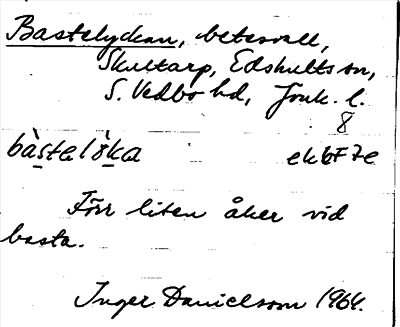 Bastelyckan, betesvall,
Skultarp, Edshults sn,
S. Vedbo hd, Jönk. l.
8
bàstelỳka ekbF7e
Förr liten åker vid
basta.
Inger Danielsson 1964.